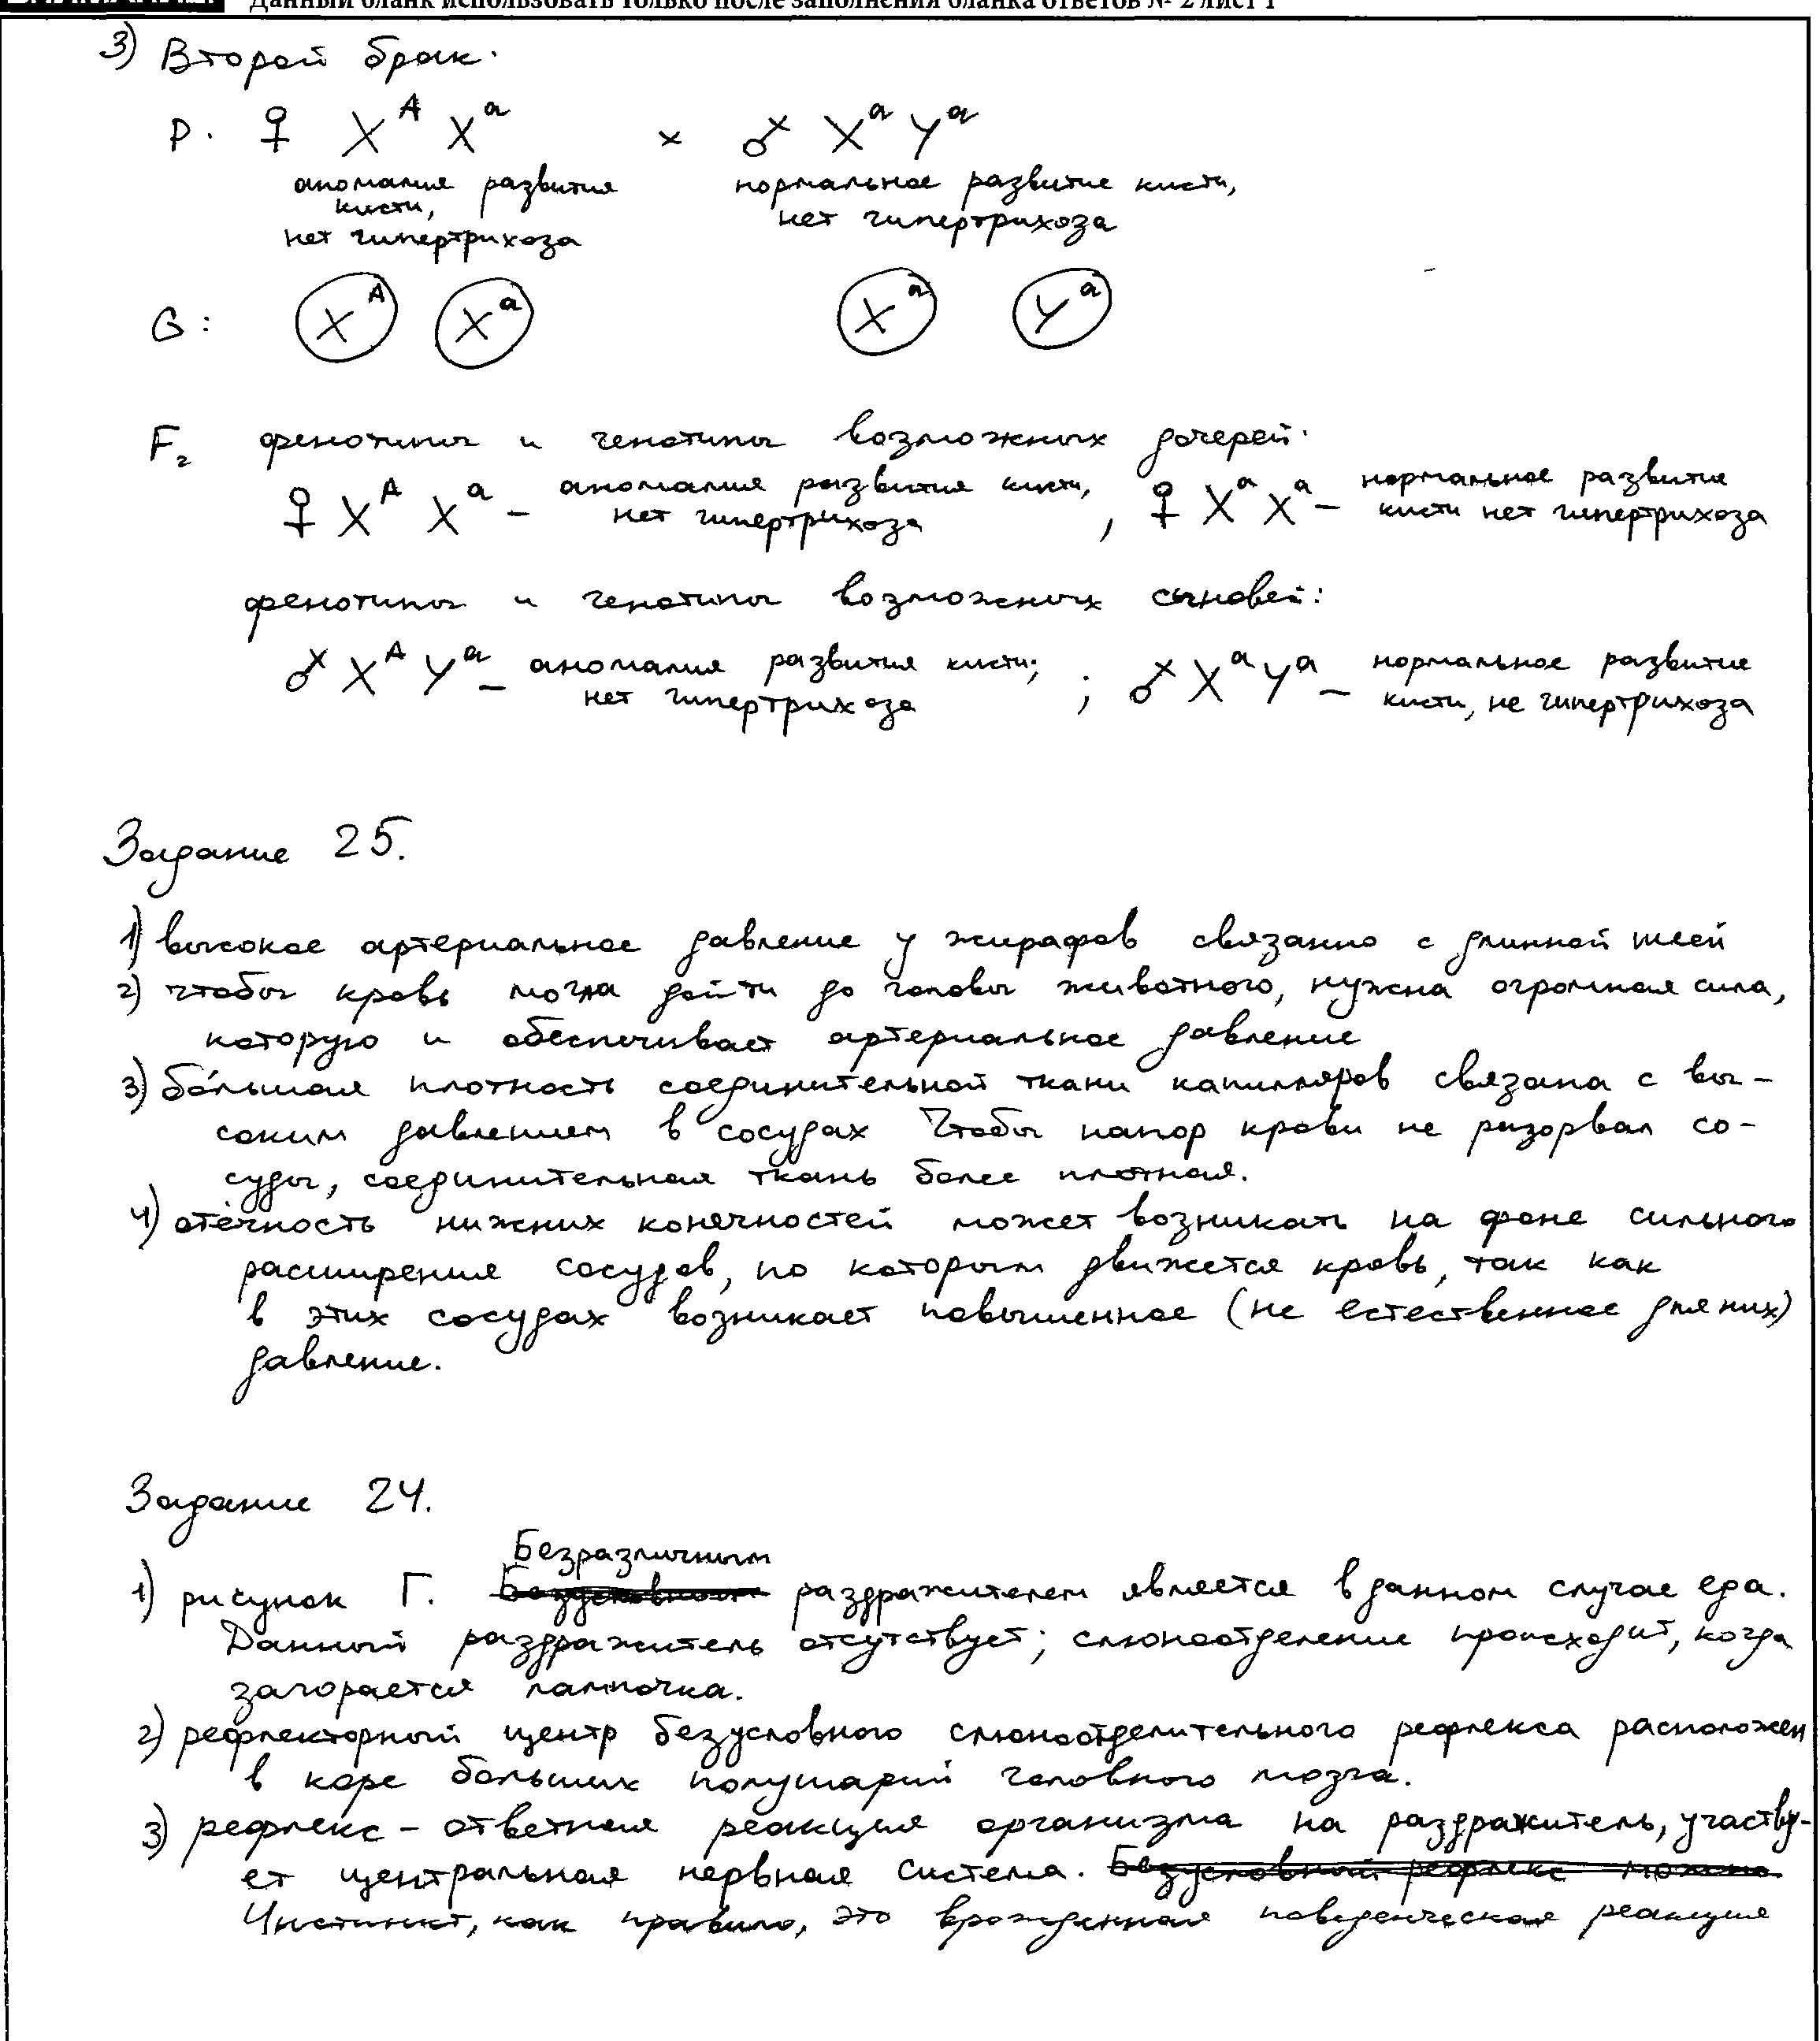 Данный бланк использовать только после заполнения бланка ответов № 2 лист 1
3) Второй брак.
P. ♀ X^A X^a × ♂ X^a Y^a
аномалия развития кисти, нет гипертрихоза
нормальное развитие кисти, нет гипертрихоза
G: X^A X^a X^a Y^a
F₂ фенотипы и генотипы возможных дочерей:
♀ X^A X^a – аномалия развития кисти, нет гипертрихоза , ♀ X^a X^a – нормальное развитие кисти нет гипертрихоза
фенотипы и генотипы возможных сыновей:
♂ X^A Y^a – аномалия развития кисти; нет гипертрихоза ; ♂ X^a Y^a – нормальное развитие кисти, не гипертрихоза
Задание 25.
1) высокое артериальное давление у жирафов связанно с длинной шеей
2) чтобы кровь могла дойти до головы животного, нужна огромная сила,
которую и обеспечивает артериальное давление
3) бо́льшая плотность соединительной ткани капилляров связана с вы-
соким давлением в сосудах Чтобы напор крови не разорвал со-
суды, соединительная ткань более плотная.
4) отёчность нижних конечностей может возникать на фоне сильного
расширения сосудов, по которым движется кровь, так как
в этих сосудах возникает повышенное (не естественное для них)
давление.
Задание 24.
Безразличным
1) рисунок Г. раздражителем является в данном случае еда.
Данный раздражитель отсутствует; слюноотделение происходит, когда
загорается лампочка.
2) рефлекторный центр безусловного слюноотделительного рефлекса расположен
в коре больших полушарий головного мозга.
3) рефлекс – ответная реакция организма на раздражитель, участву-
ет центральная нервная система. Безусловный рефлекс можно
Инстинкт, как правило, это врожденная поведенческая реакция